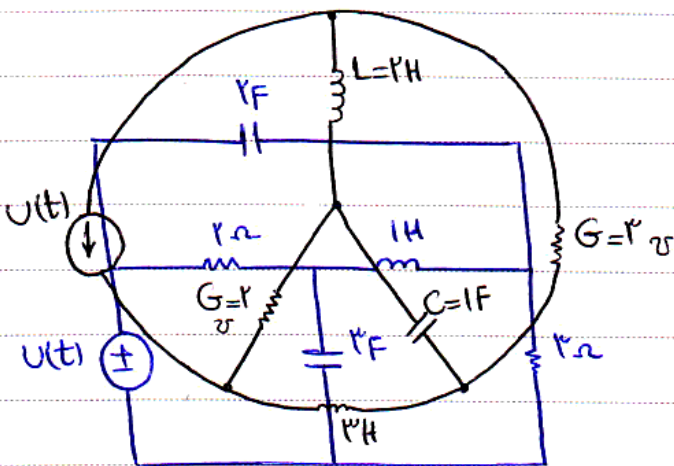 L=۲H
۲F
U(t)
۲Ω
۱H
G=۳ ℧
G=۲
℧
C=۱F
U(t)
±
۳F
۳Ω
۳H